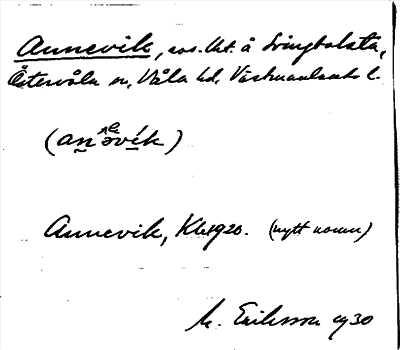 Annevik, sos. lht. å Svingbolsta,
Östervåla sn, Våla hd, Västmanlands l.
(anəvik)
Annevik, Kb 1920. (nytt namn)
M. Eriksson 1930